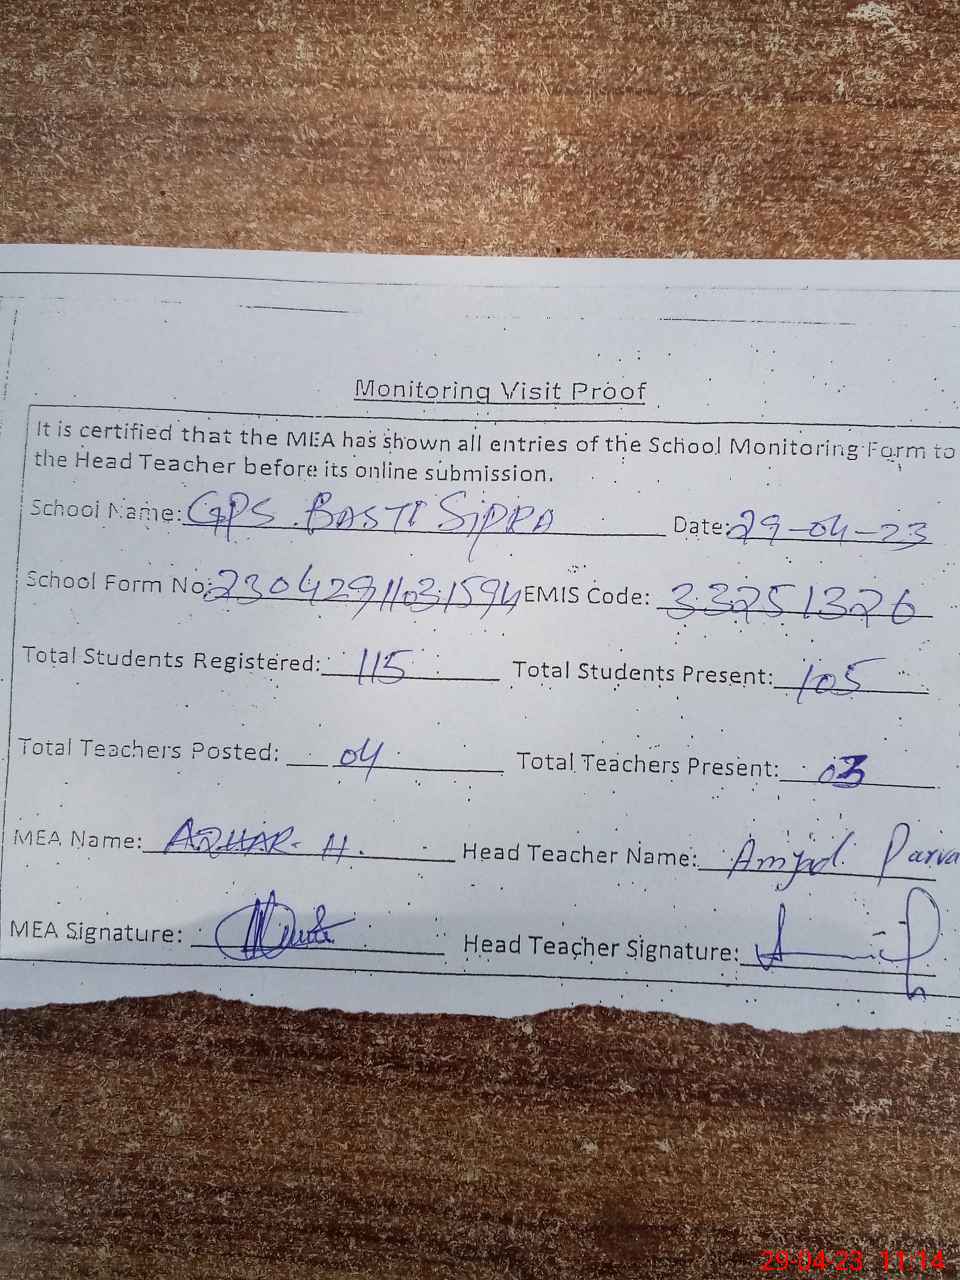 Monitoring Visit Proof
It is certified that the MEA has shown all entries of the School Monitoring Form to
the Head Teacher before its online submission.
School Name: GPS BASTI SIPRA Date: 29-04-23
School Form No: 23042911031594 EMIS Code: 33251326
Total Students Registered: 115 Total Students Present: 105
Total Teachers Posted: 04 Total Teachers Present: 03
MEA Name: AZHAR. H. Head Teacher Name: Amjad Parva
MEA Signature: Head Teacher Signature:
29-04-23 11:14